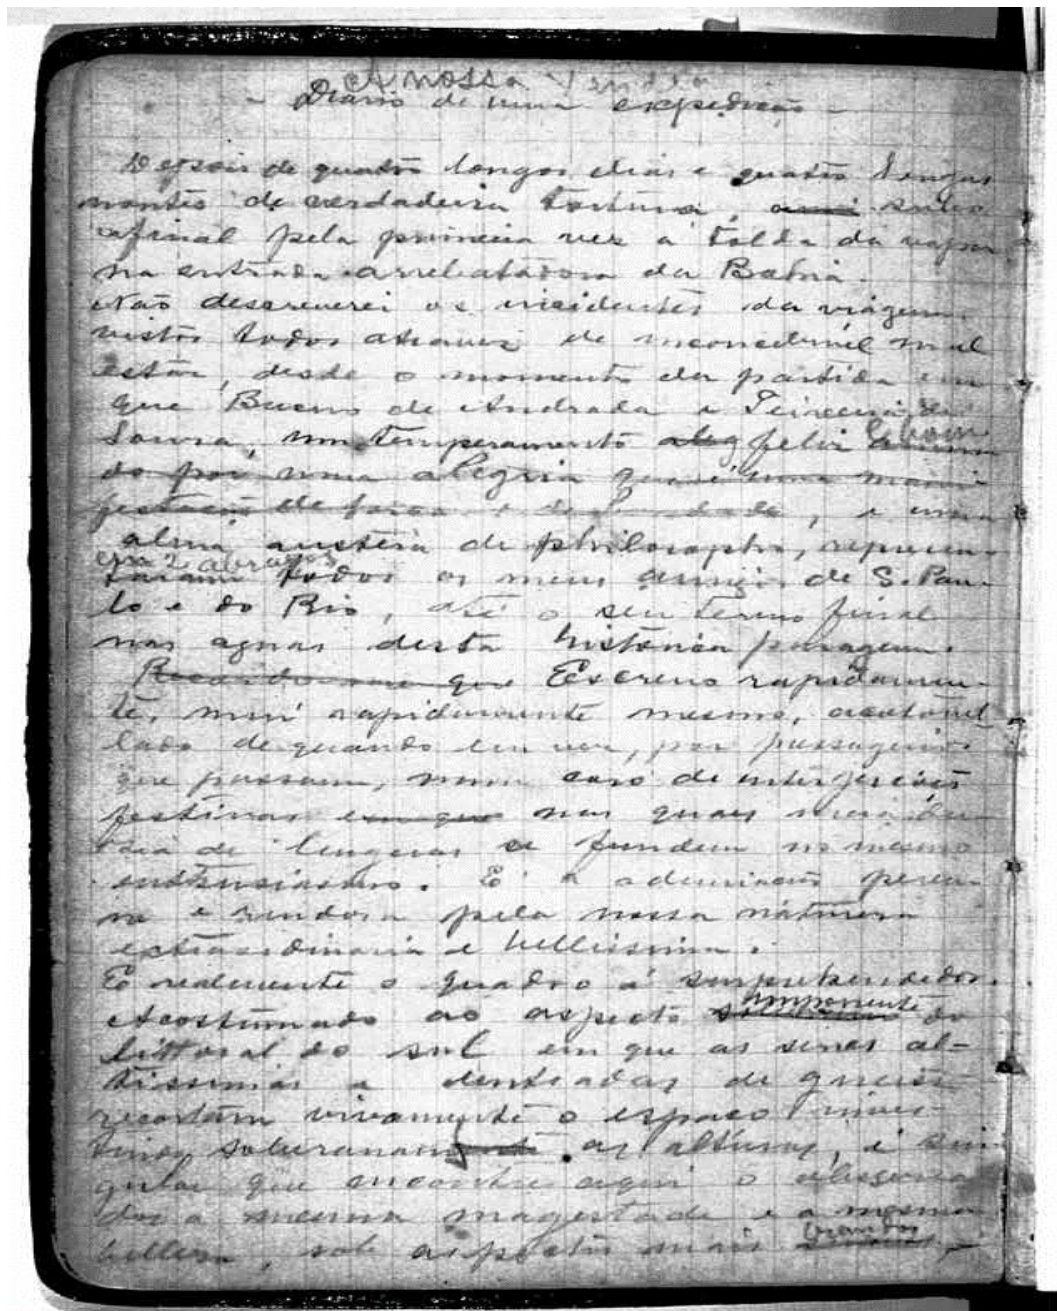 A nossa Vendéa
- Diario de uma expedição -
Depois de quatro longos dias e quatro longas
noites de verdadeira tortura, subo
afinal pela primeira vez á tolda do vapor
na entrada arrebatadora da Bahia.
Não descreverei os incidentes da viagem
vistos todos atravez de inconcebivel mal
estar, desde o momento da partida em
que Bueno de Andrada e Teixeira de
Souza, um temperamento aleg feliz e bom
do por uma alegria que é uma mani-
festação de força e de bondade, e uma
alma austera de philosopho, represen-
em 2 abraços
taram todos os meus amigos de S. Pau-
lo e do Rio, até o seu termo final
nas aguas desta historica paragem.
Recordo-me que Escrevo rapidamen-
te, mui rapidamente mesmo, acotovel
lado de quando em vez, por passageiros
que passam, num coro de interjeições
festivas em que nas quaes meia du-
zia de linguas se fundem no mesmo
enthusiasmo. É a admiração peren-
ne e ruidosa pela nossa natureza
extraordinaria e bellissima.
E realmente o quadro é surprehendedor.
Acostumado ao aspecto imponente do
littoral do sul em que as serras al-
tissimas e denteadas de gneiss
recortam vivamente o espaço inves-
tindo soberanamente as alturas, é sin-
gular que encontre aqui o observa
dor a mesma magestade e a mesma
belleza, sob aspectos mais brandos,